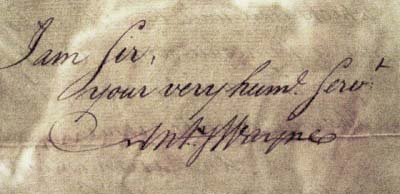 I am Sir,
your very humᵉ. Servᵗ
Antʸ Wayne